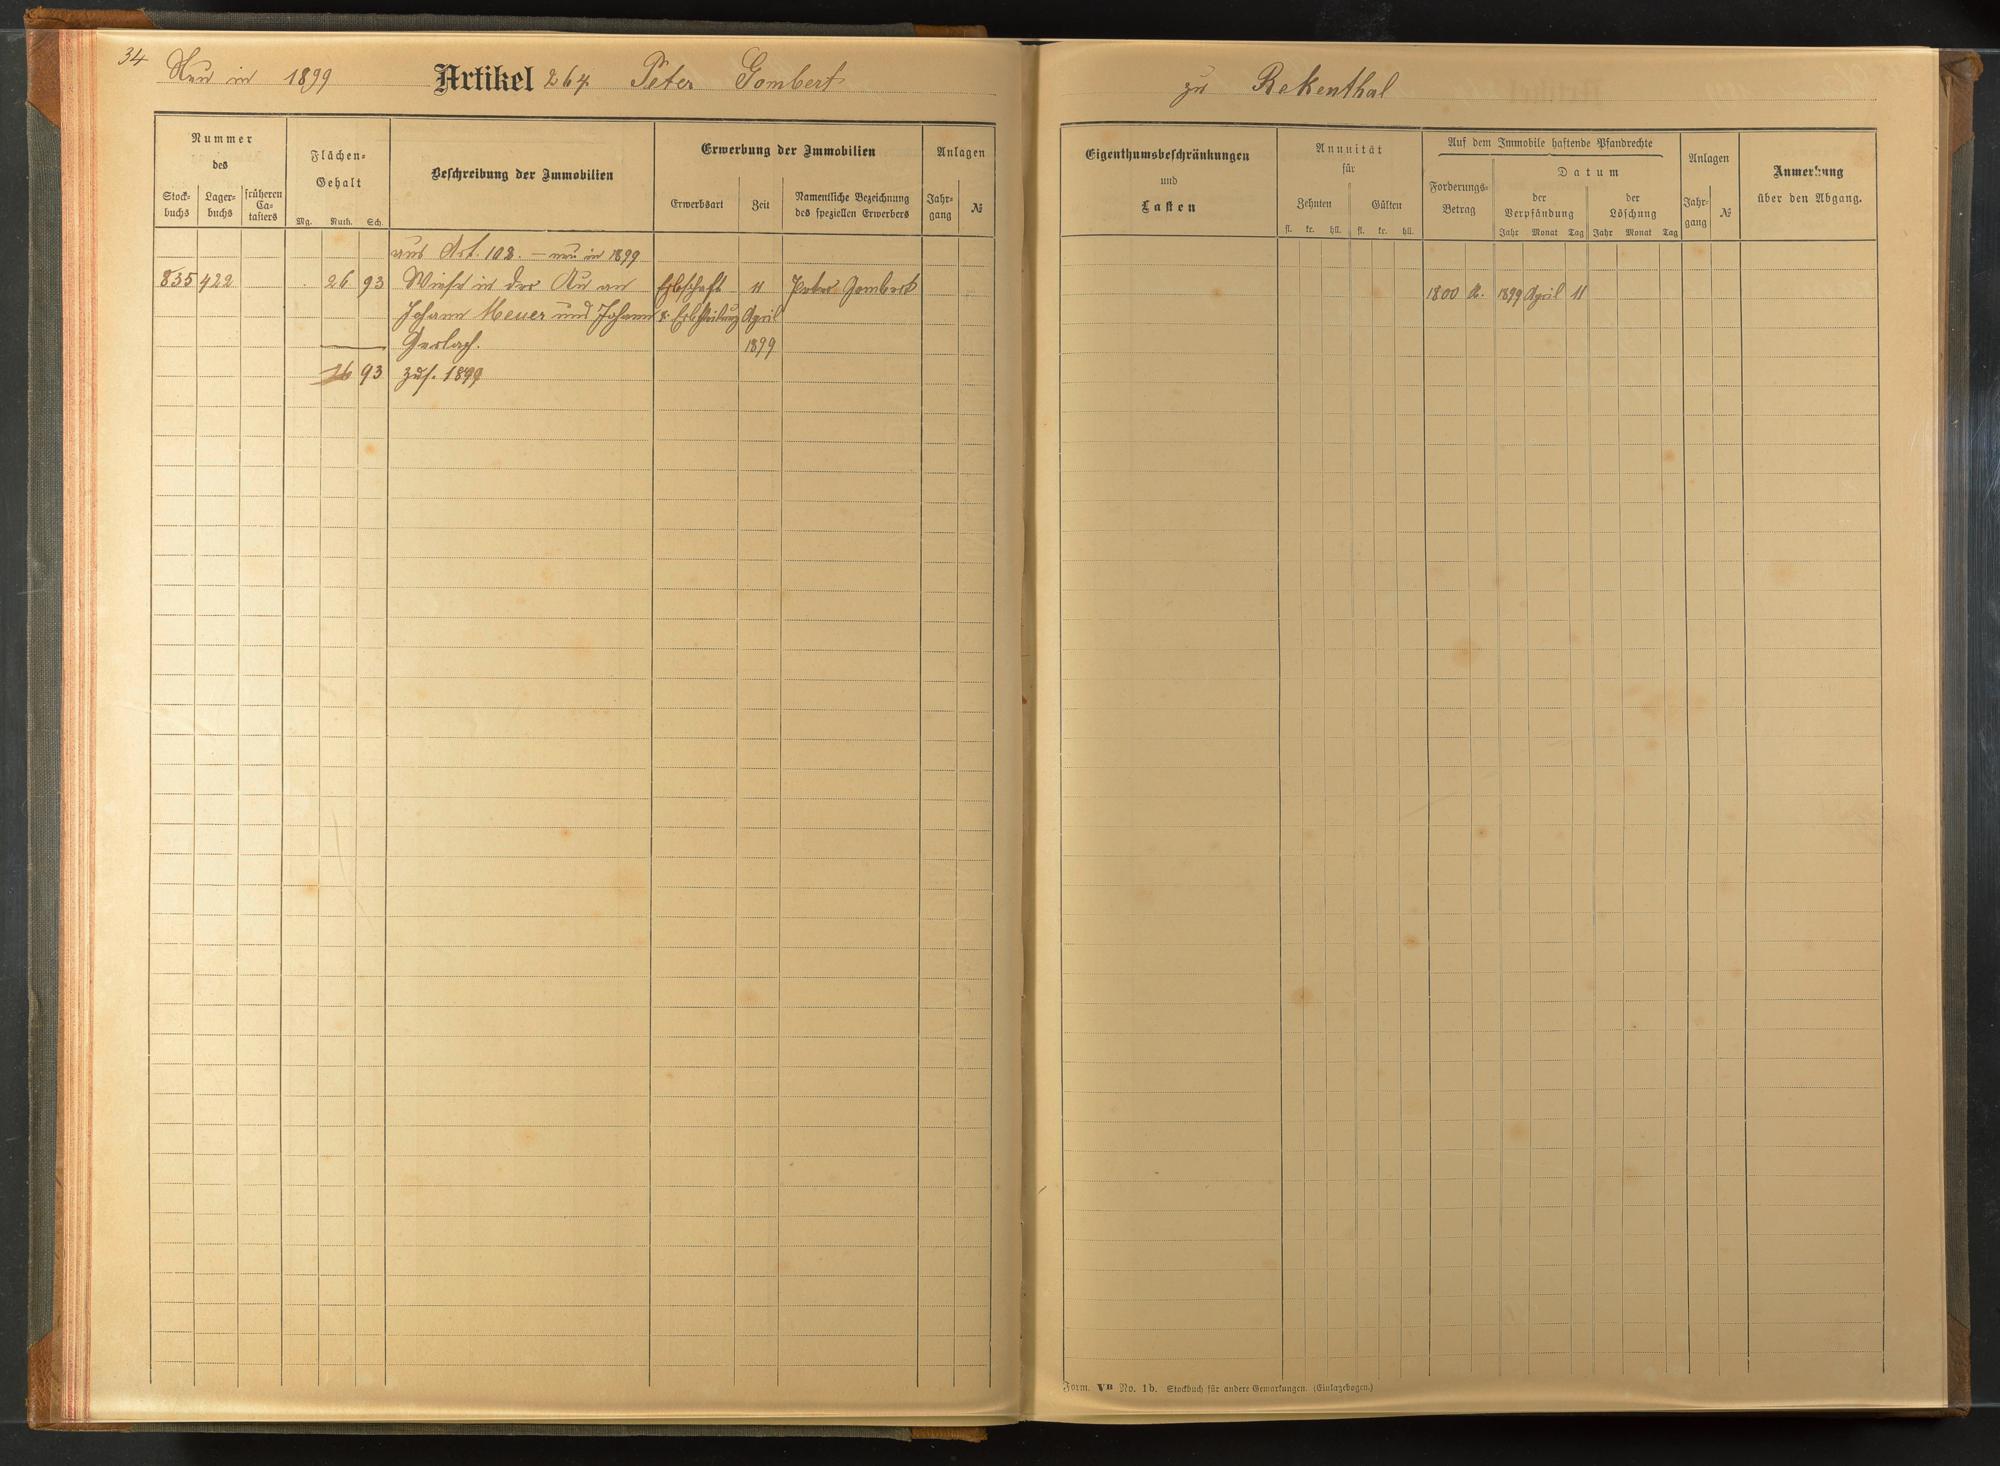 34 Neu in 1899 Artikel 264. Peter Gombert zu Rekenthal
Nummer des
Stock-buchs
Lager-buchs
früheren Ca-tasters
Flächen-Gehalt
Mg. Ruth. Sch.
Beschreibung der Immobilien
Erwerbung der Immobilien
Erwerbsart
Zeit
Namentliche Bezeichnung des speziellen Erwerbers
Anlagen
Jahr-gang
№
aus Art. 108. — neu in 1899
835 422 26 93 Wiese in der Au an Erbschaft 11 Peter Gombert
Johann Meuer und Johann & Erbtheilung April
Gerlach. 1899
26 93 zus. 1899
Eigenthumsbeschränkungen
und
Lasten
Annuität
für
Zehnten
Gülten
fl. kr. hll. fl. kr. hll.
Auf dem Immobile haftende Pfandrechte
Forderungs-Betrag
Datum
der Verpfändung
der Löschung
Jahr Monat Tag Jahr Monat Tag
Anlagen
Jahr-gang
№
Anmerkung
über den Abgang.
1800 M. 1899 April 11
Form. VB No. 1b. Stockbuch für andere Gemarkungen. (Einlagebogen.)